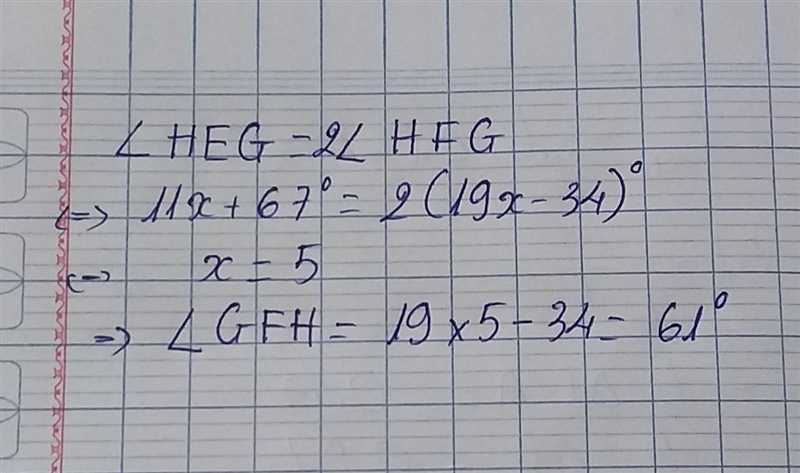 ∠ HEG = 2∠ HFG
<=> 11x + 67° = 2(19x - 34)°
<=> x = 5
=> ∠ GFH = 19 x 5 - 34 = 61°